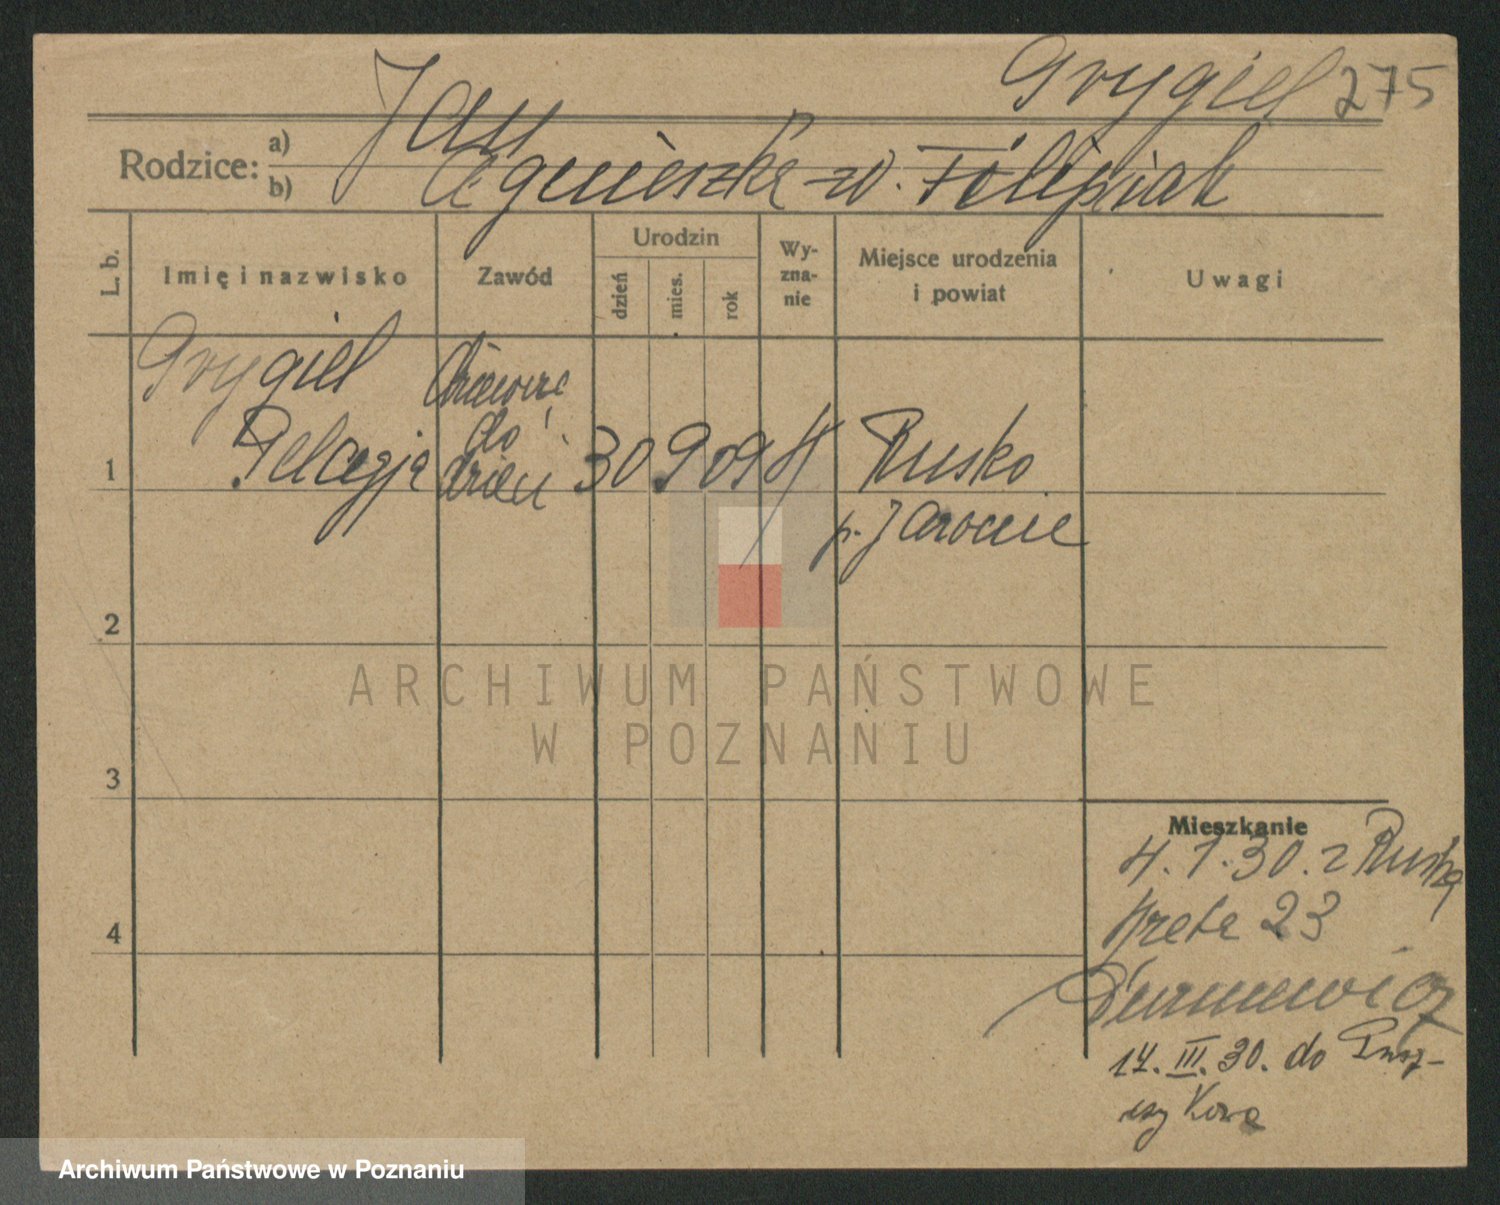 Grygiel 275
Rodzice: a) Jan
b) Agnieszka zd. Filipiak
L. b. Imię i nazwisko Zawód Urodzin dzień mies. rok Wyznanie Miejsce urodzenia i powiat Uwagi
Grygiel
1 Pelagja do dzieci 30 9 09 Rusko
p. Jarocin
2
3
4
Mieszkanie
4.1.30. z Ruska
Kręta 23
14. III. 30. do
ARCHIWUM PAŃSTWOWE
W POZNANIU
Archiwum Państwowe w Poznaniu